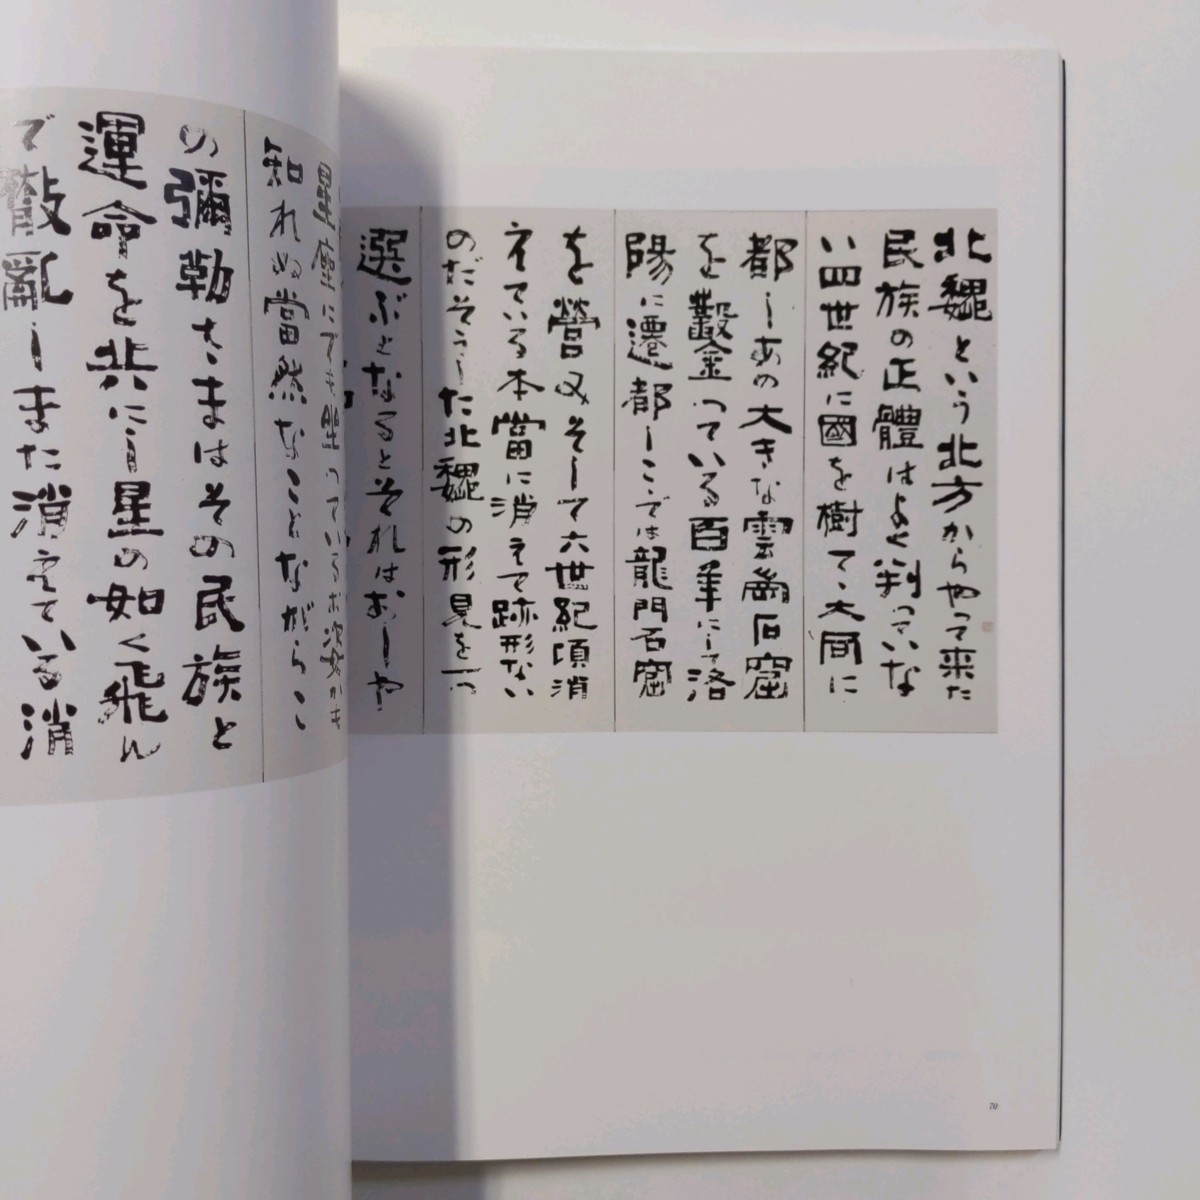 北魏という北方からやって来た
民族の正體はよく判っていな
い四世紀に國を樹て、大同に
都しあの大きな雲崗石窟
を鑿っている百年にして洛
陽に遷都しこゝでは龍門石窟
を營又そして六世紀頃消
えている本當に消えて跡形ない
のだそうした北魏の形見を一つ
選ぶとなるとそれはおしや
星座にでも坐っている
知れぬ當然なことながらこ
の彌勒さまはその民族と
運命を共にし星の如く飛ん
で散亂しまた消えている消
70